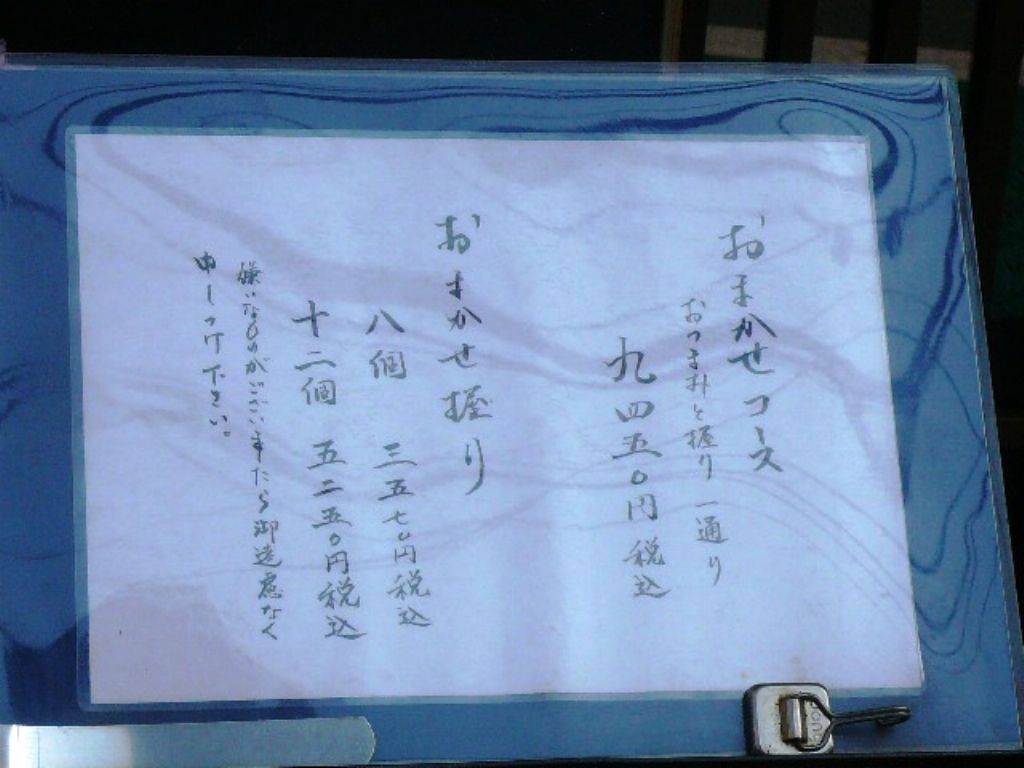 おまかせコース
おつまみと握り一通り
九四五〇円税込
おまかせ握り
八個 三五七〇円税込
十二個 五二五〇円税込
嫌いなものがございましたら御遠慮なく
申しつけ下さい。